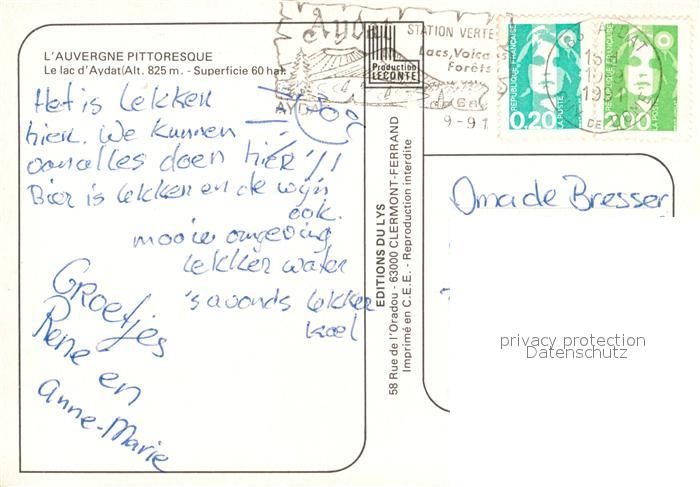 L'AUVERGNE PITTORESQUE
Le lac d'Aydat (Alt. 825 m. - Superficie 60 ha).
Het is lekker
hier. We kunnen
van alles doen hier!!
Bier is lekker en de wijn
ook.
mooie omgeving
lekker water
's avonds lekker
koel
Groetjes
Rene en
Anne-Marie
Production
LECONTE
EDITIONS DU LYS
58 Rue de l'Oradou - 63000 CLERMONT-FERRAND
Imprimé en C.E.E. - Reproduction interdite
Aydat
STATION VERTE
Lacs, Volca
Forêts
AYDAT
9-91
RÉPUBLIQUE FRANÇAISE
0,20
LA POSTE
RÉPUBLIQUE FRANÇAISE
2,00
LA POSTE
AYDAT
Oma de Bresser
privacy protection
Datenschutz